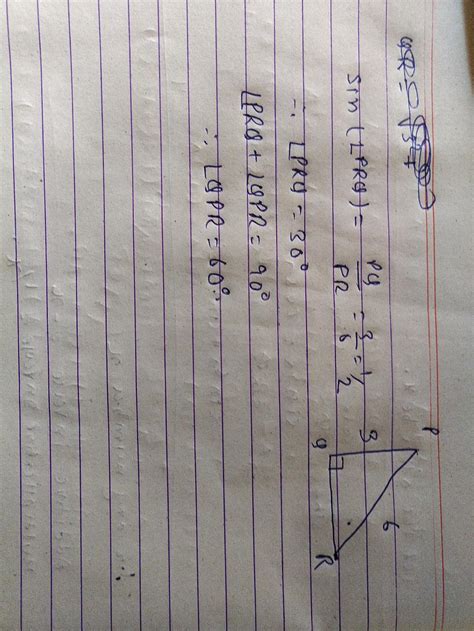 QR =
sin(∠PRQ) = PQ/PR = 3/6 = 1/2
∴ ∠PRQ = 30°
∠PRQ + ∠QPR = 90°
∴ ∠QPR = 60°
P
3
6
Q
R